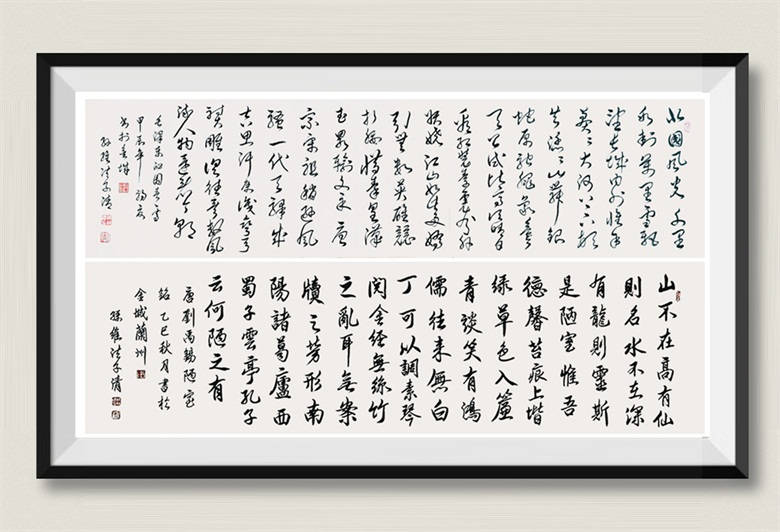 北國風光千里
冰封萬里雪飄
望長城內外惟余
莽莽大河上下頓
失滔滔山舞銀
蛇原馳蠟象欲與
天公試比高須晴日
看紅裝素裹分外
妖嬈江山如此多嬌
引無數英雄競
折腰惜秦皇漢
武略輸文采唐
宗宋祖稍遜風
騷一代天驕成
吉思汗只識彎弓
射雕俱往矣數風
流人物還看今朝
毛澤東沁園春雪
甲辰年
山不在高有仙
則名水不在深
有龍則靈斯
是陋室惟吾
德馨苔痕上堦
綠草色入簾
青談笑有鴻
儒往來無白
丁可以調素琴
閱金經無絲竹
之亂耳無案
牘之芳形南
陽諸葛廬西
蜀子雲亭孔子
云何陋之有
唐劉禹錫陋室
銘乙巳秋月書於
金城蘭州
孫維法